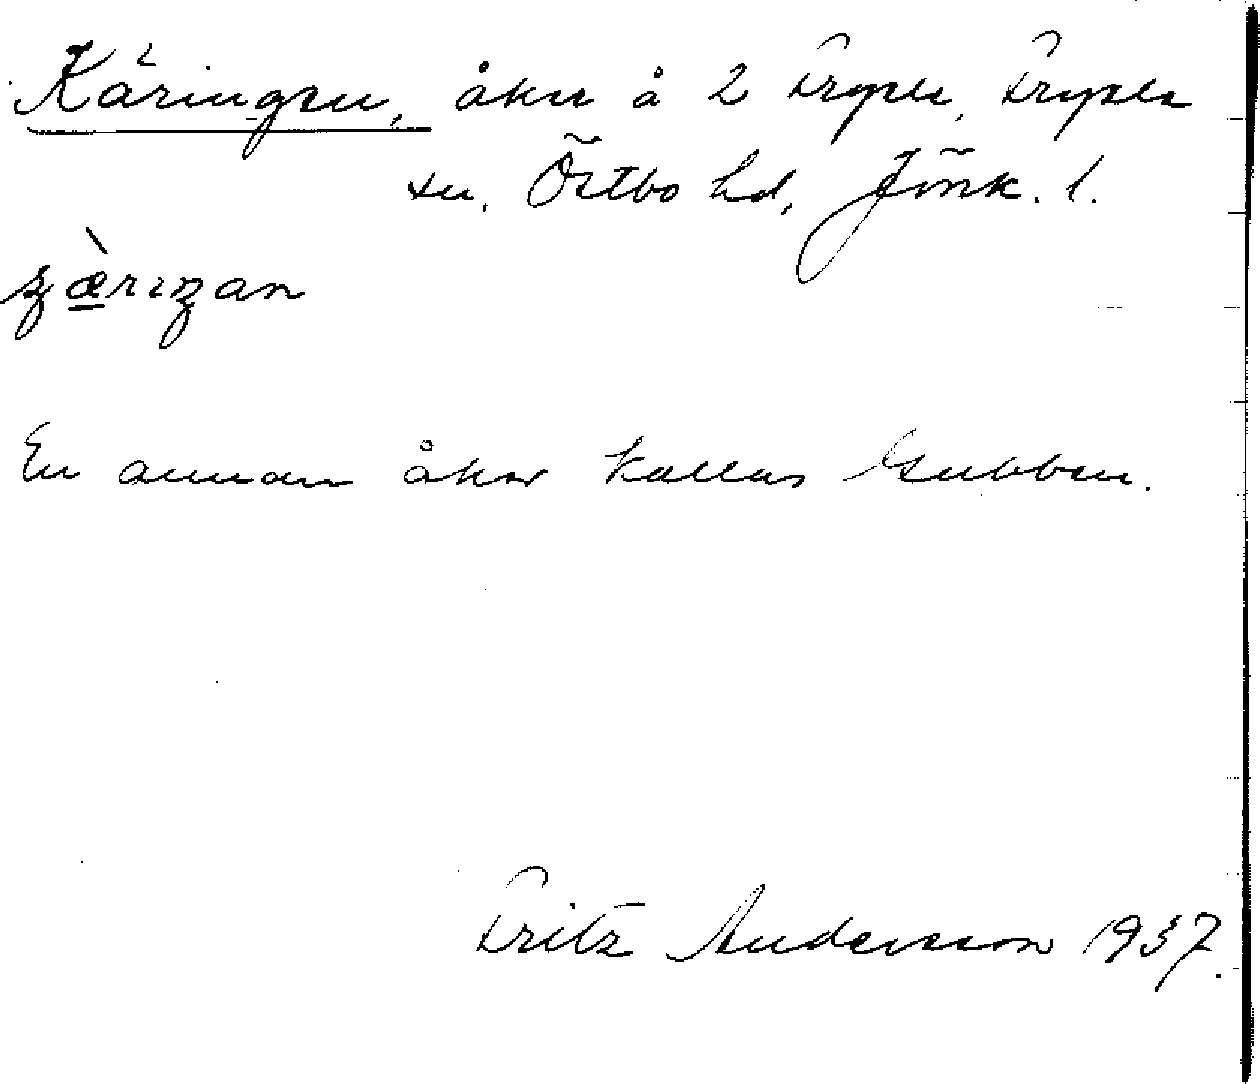 Käringen, åker å 2 Fryele, Fryele
sn. Östbo hd, Jönk. l.
En annan åker kallas Gubben.
Fritz Andersson 1937.